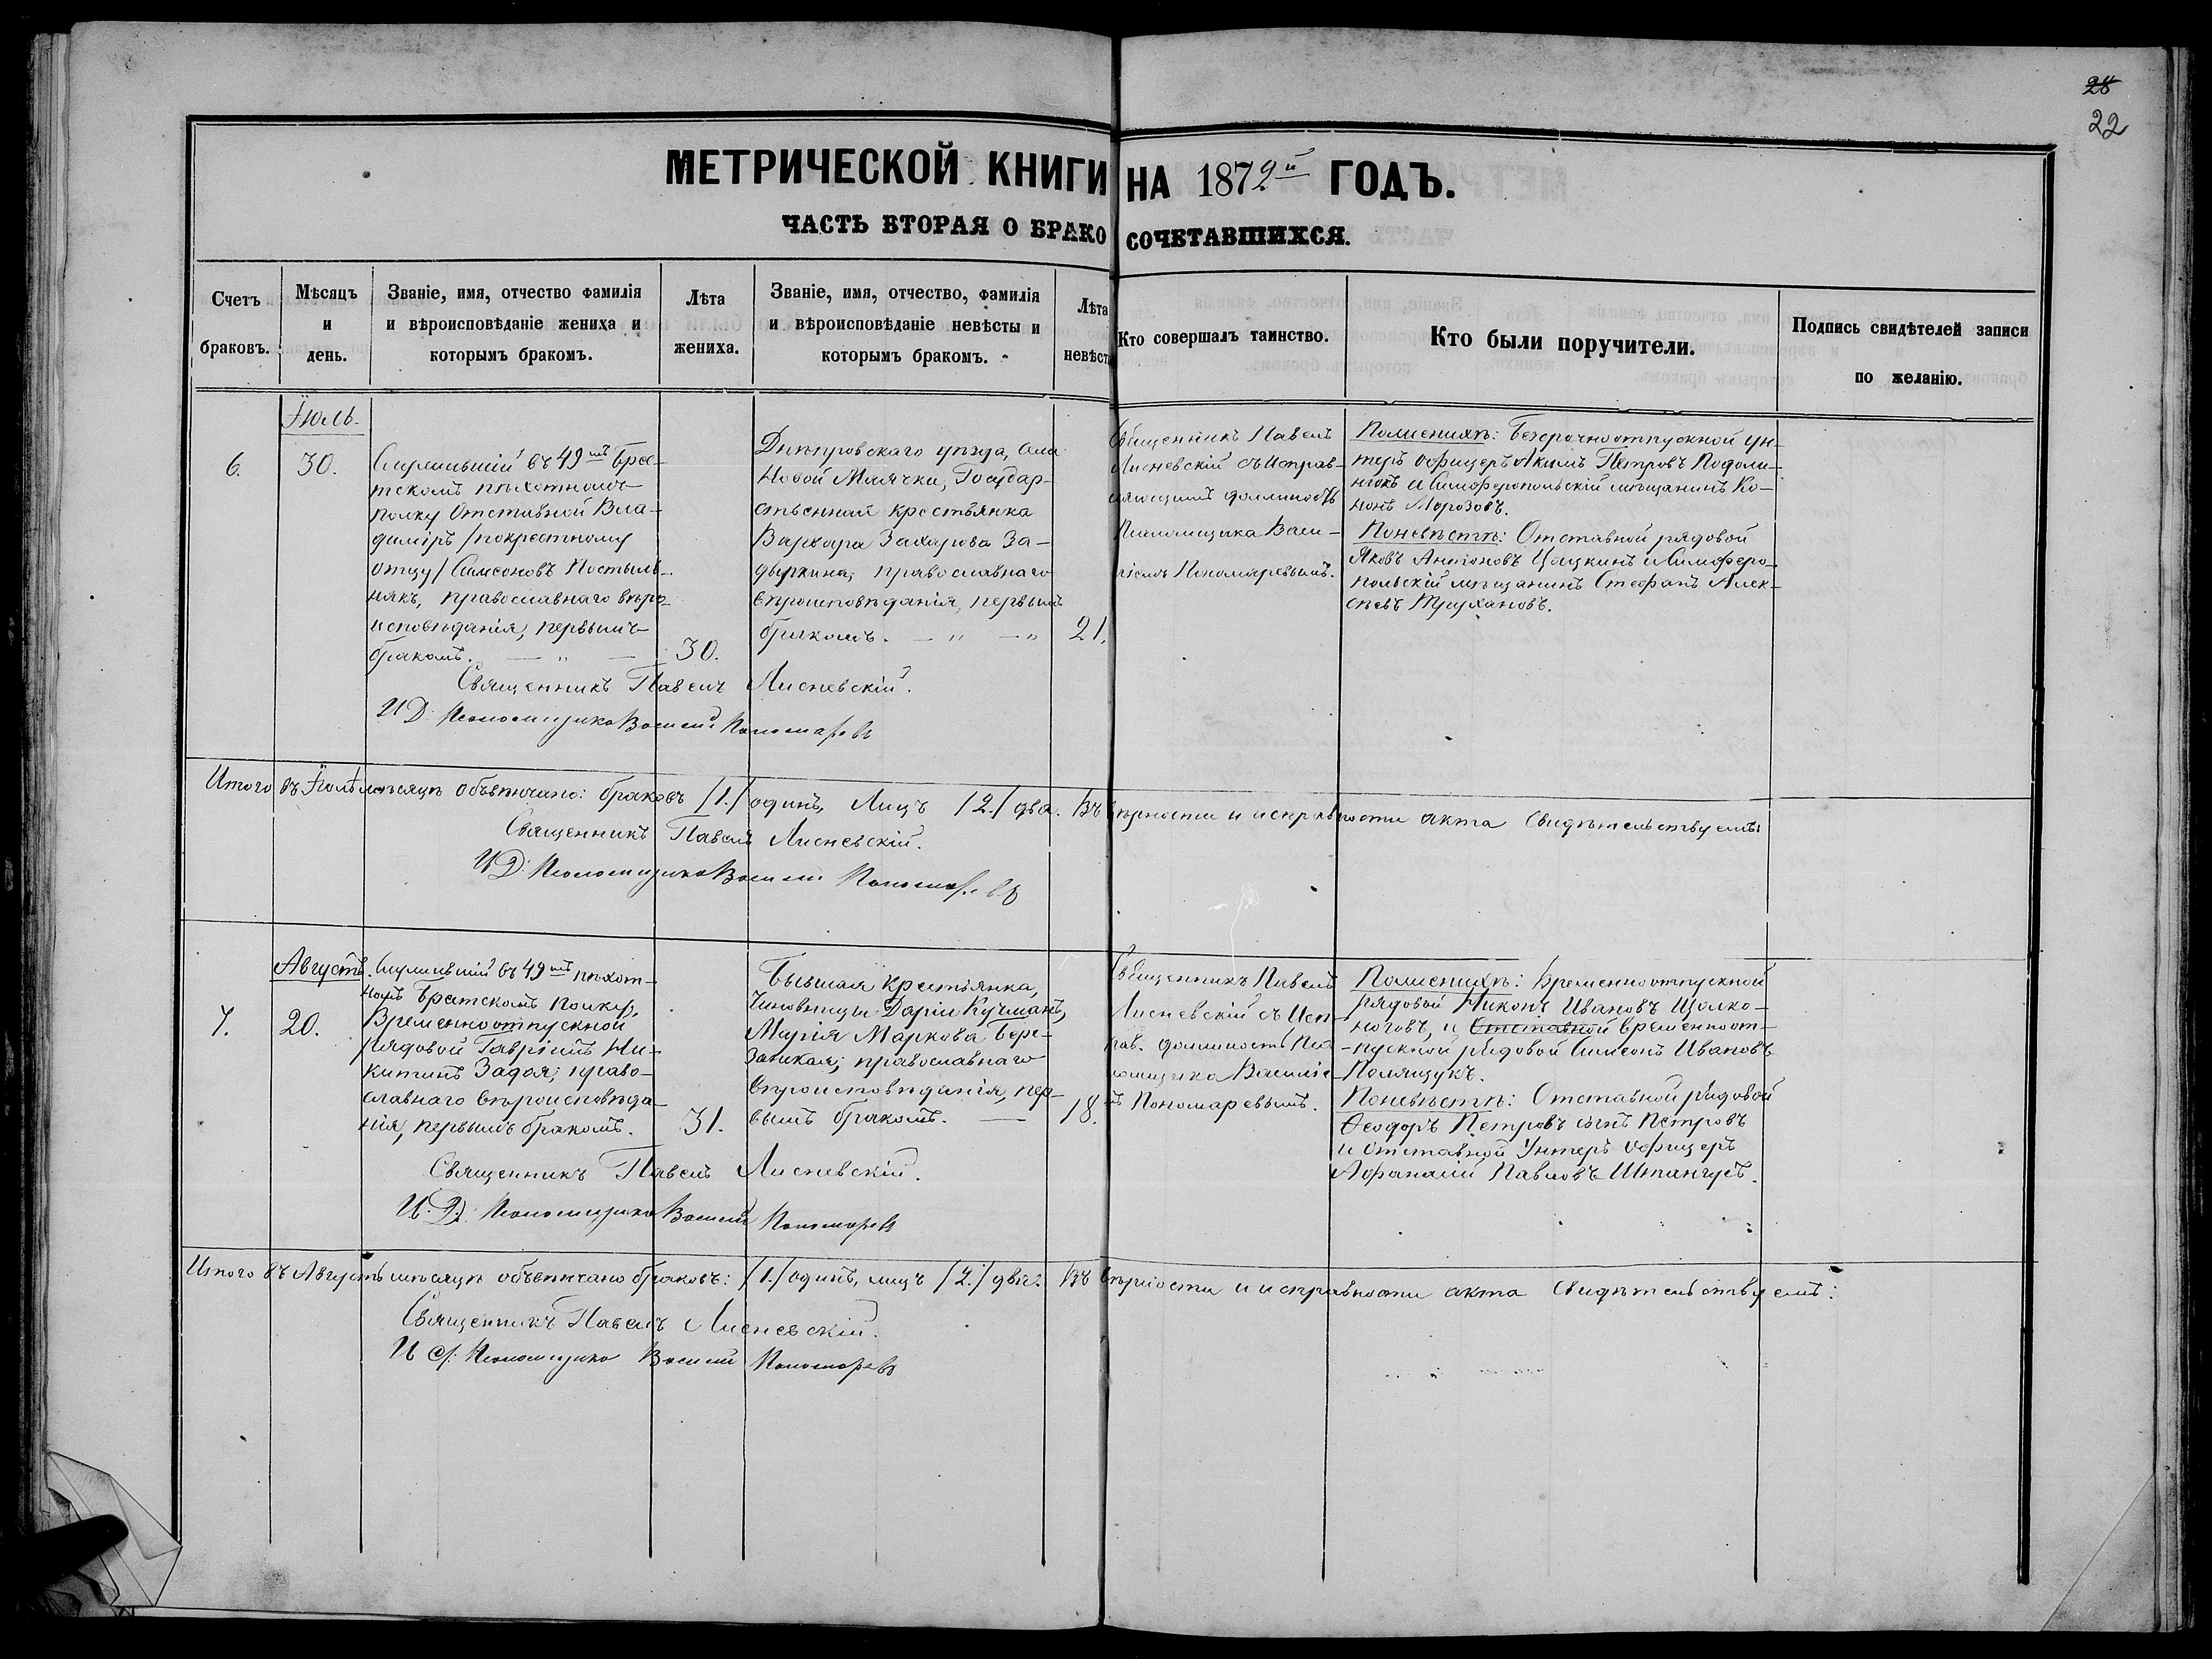 28
22
МЕТРИЧЕСКОЙ КНИГИ НА 1872й ГОДЪ.
ЧАСТЬ ВТОРАЯ О БРАКОСОЧЕТАВШИХСЯ.
Счетъ браковъ.
Мѣсяцъ и день.
Званіе, имя, отчество фамилія
и вѣроисповѣданіе жениха и
которымъ бракомъ.
Лѣта жениха.
Званіе, имя, отчество, фамилія
и вѣроисповѣданіе невѣсты и
которымъ бракомъ.
Лѣта невѣст
Кто совершалъ таинство.
Кто были поручители.
Подпись свидѣтелей записи
по желанію.
6.
Іюль.
30.
Служившій въ 49мъ Брес-
тскомъ пѣхотномъ
полку Отставной Вла-
диміръ /по крестному
отцу/ Симеоновъ Постыль-
някъ, православнаго вѣро-
исповѣданія, первымъ
бракомъ. — " —
30.
Днѣпровскаго уѣзда, села
Новой Маячки, Государ-
ственная крестьянка
Варвара Захарова За-
дыркина, православнаго
вѣроисповѣданія, первымъ
бракомъ. — " — "
21.
Священникъ Павелъ
Лисневскій съ исправ-
ляющимъ должность
Псаломщика Васи-
ліемъ Пономаревымъ.
По женихѣ: Безсрочноотпускной ун-
теръ офицеръ Акимъ Петровъ Подоли-
нюкъ и Симферопольскій мѣщанинъ Ко-
нонъ Морозовъ.
По невѣстѣ: Отставной рядовой
Яковъ Антоновъ Цацкинъ и Симферо-
польскій мѣщанинъ Стефанъ Алек-
сѣевъ Трухановъ.
Священникъ Павелъ Лисневскій.
И Д Псаломщика Василій Пономаревъ
Итого въ Іюлѣ мѣсяцѣ объвенчано: браковъ /1./ одинъ, Лицъ /2./ два. Въ вѣрности и исправности акта свидѣтельствуемъ:
Священникъ Павелъ Лисневскій.
И Д: Псаломщика Василій Пономаревъ
7.
Августъ.
20.
Служившій въ 49мъ пѣхот-
номъ Брестскомъ полку,
Временноотпускной
рядовой Гавріилъ Ни-
китинъ Задоя; право-
славнаго вѣроисповѣда-
нія, первымъ бракомъ.
31.
Бывшая крестьянка,
Чиновницы Даріи Кучманъ,
Марія Маркова Бере-
зацкая; православнаго
вѣроисповѣданія, пер-
вымъ бракомъ. —
18.
Священникъ Павелъ
Лисневскій съ Исп-
рав. должность Пса
ломщика Василіе-
мъ Пономаревымъ.
По женихѣ: Временноотпускной
рядовой Никонъ Ивановъ Щолко-
ноговъ, и Отставной временноот-
-пускной рядовой Симеонъ Ивановъ
Полящукъ.
По невѣстѣ: Отставной рядовой
Ѳеодоръ Петровъ сынъ Петровъ
и отставной Унтеръ офицеръ
Афанасій Павловъ Штангуст.
Священникъ Павелъ Лисневскій.
И. Д: Псаломщика Василій Пономаревъ
Итого въ Августѣ мѣсяцѣ объвенчано браковъ: /1./ одинъ, лицъ /2./ двое. Въ вѣрности и исправности акта свидѣтельствуемъ:
Священникъ Павелъ Лисневскій.
И Д: Псаломщика Василій Пономаревъ